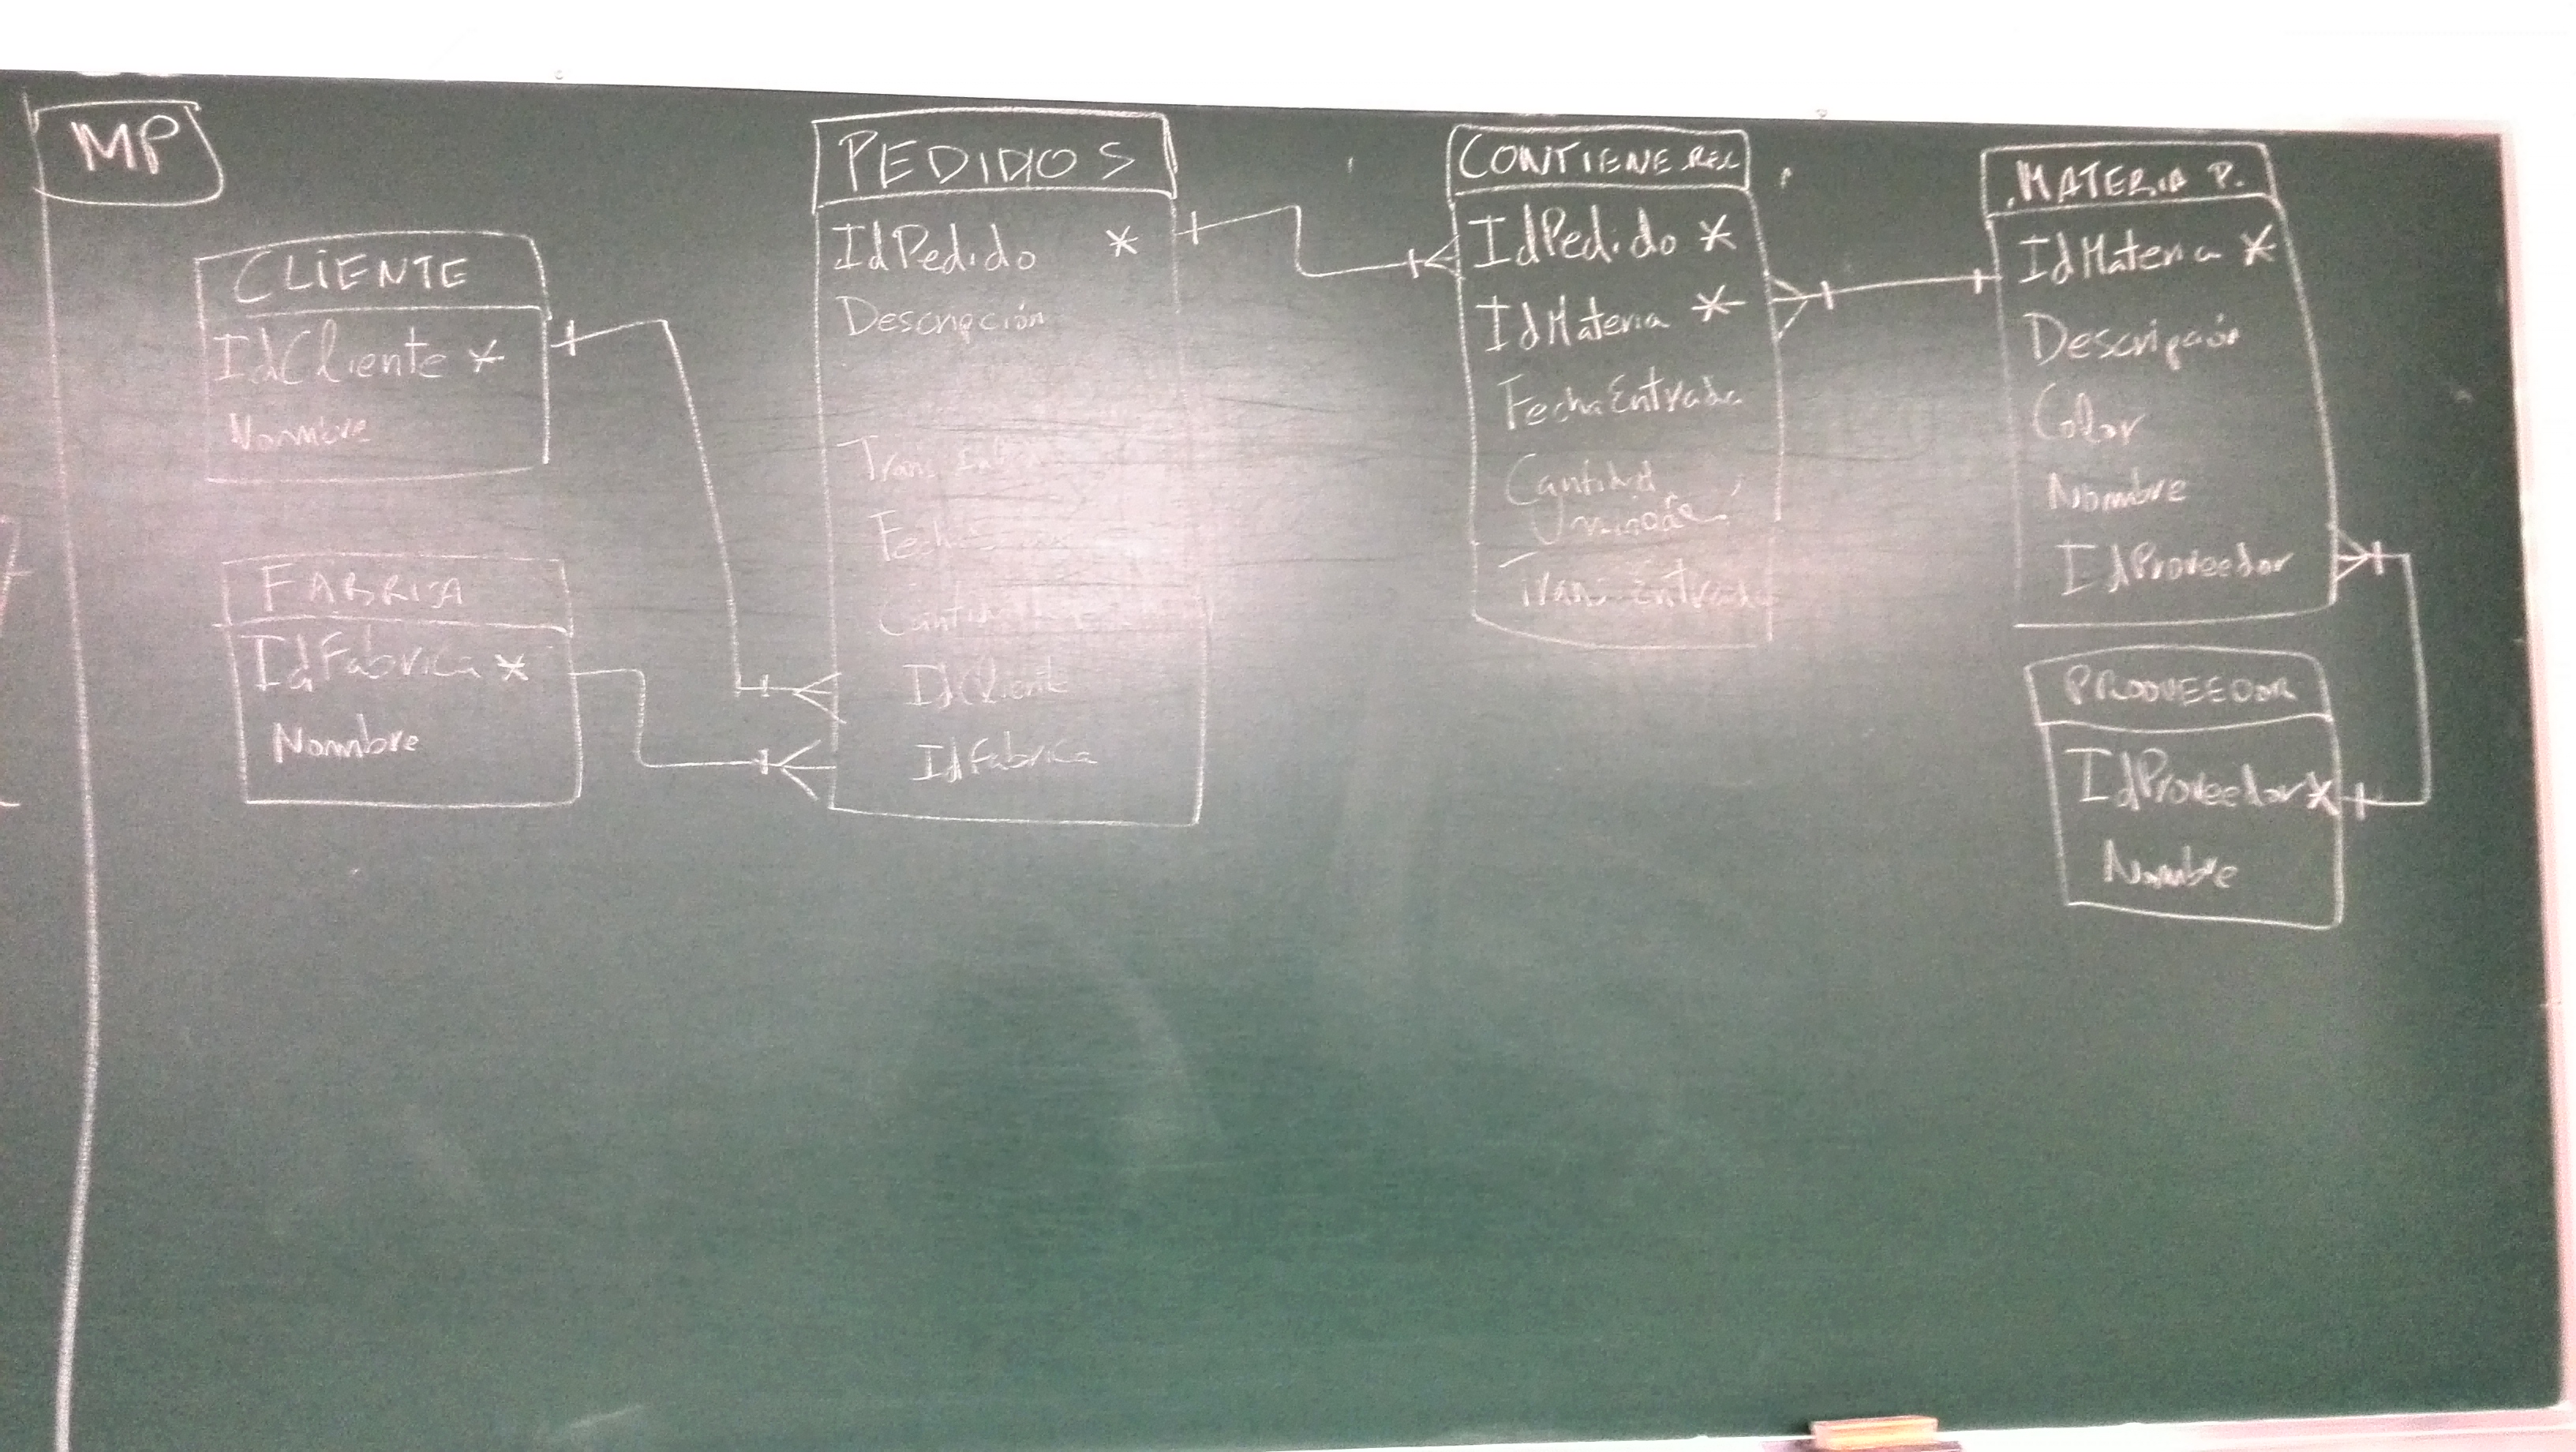 MP
CLIENTE
IdCliente *
Nombre
FABRICA
IdFabrica *
Nombre
PEDIDOS
IdPedido *
Descripción
Trans
Cantidad
IdCliente
IdFabrica
CONTIENE REL
IdPedido *
IdMateria *
FechaEntrada
Cantidad
Trans Entrada
MATERIA P.
IdMateria *
Descripción
Color
Nombre
IdProveedor
PROOVEEDOR
IdProveedor *
Nombre